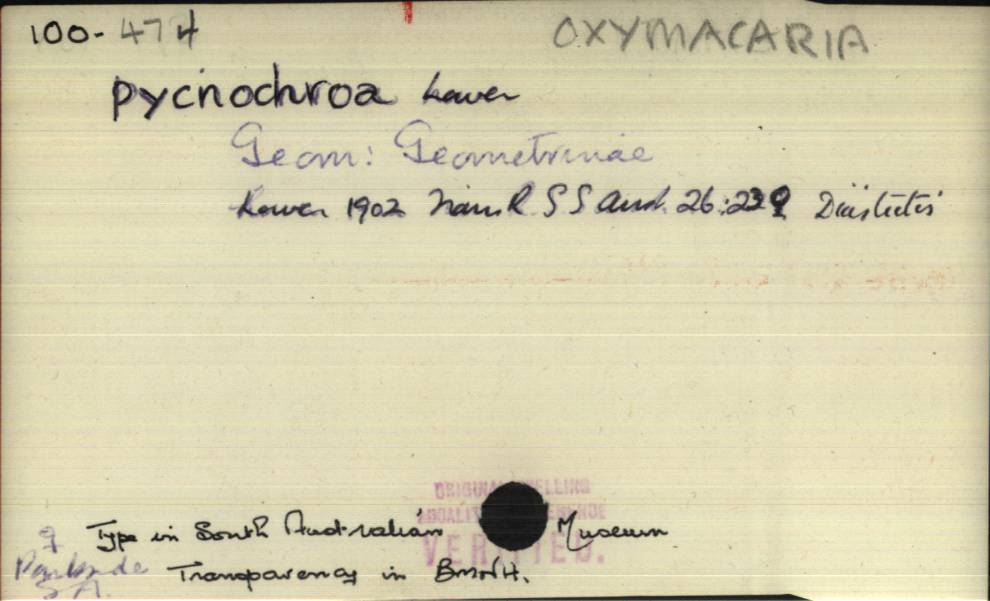 100-474 OXYMACARIA
pycnochroa Lower
Geom: Geometrinae
Lower 1902 Trans R S S Aust. 26:239
ORIGINAL SPELLING
VERIFIED.
♀ Type in South Australian Museum
Parkside S A. Transparency in BMNH.